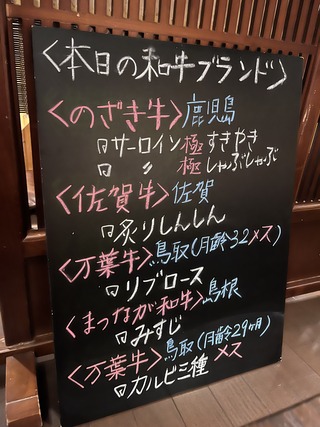 <本日の和牛ブランド>
<のざき牛>鹿児島
日サーロイン極すきやき
日 〃 極しゃぶしゃぶ
<佐賀牛>佐賀
日炙りしんしん
<万葉牛>鳥取(月齢32メス)
日リブロース
<まつなが和牛>島根
日みすじ
<万葉牛>鳥取(月齢29ヶ月)メス
日カルビ三種